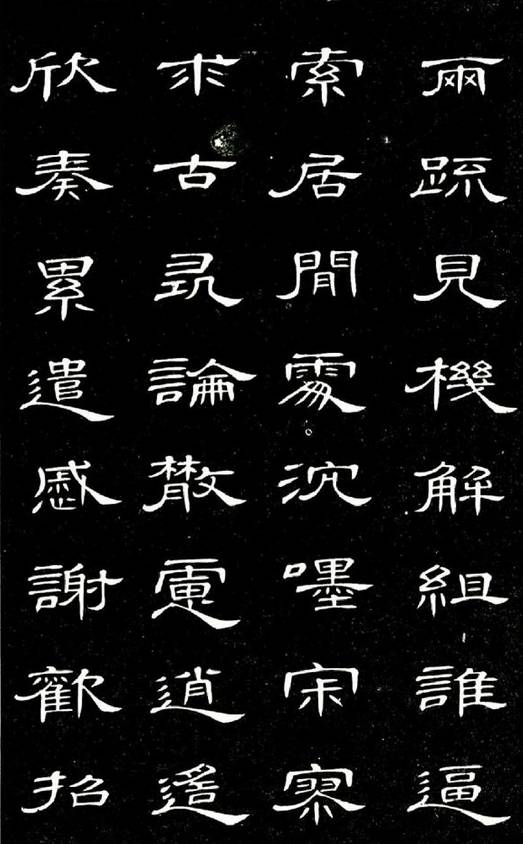 兩疏見機解組誰逼
索居閒處沉嘿宋寥
求古尋論散慮逍遙
欣奏累遣慼謝歡招